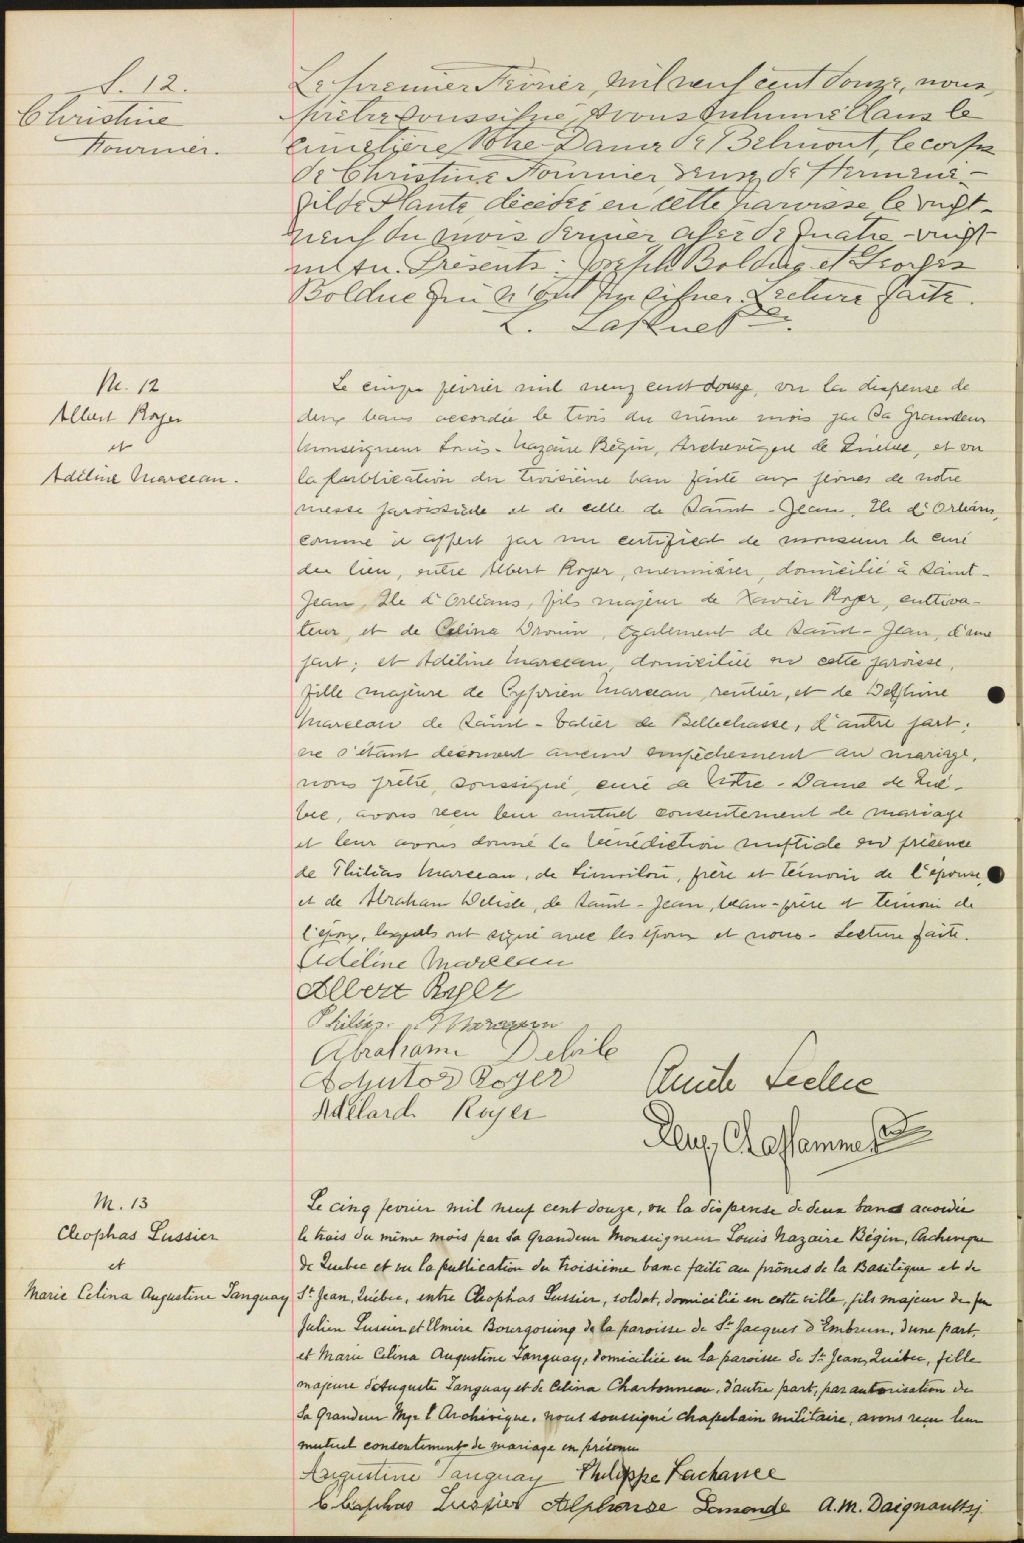 S. 12.
Christine
Fournier.
Le premier Février, mil neuf cent douze, nous,
prêtre soussigné, avons inhumé dans le
cimetière Notre-Dame de Belmont, le corps
de Christine Fournier, veuve de Hermené-
gilde Plante, décédée en cette paroisse le vingt-
neuf du mois dernier, agée de quatre-vingt-
un an. Présents: Joseph Bolduc et Georges
Bolduc qui n'ont pu signer. Lecture faite.
M. 12
Albert Royer
et
Adéline Marceau.
Le cinq février mil neuf cent douze, vu la dispense de
deux bans accordée le trois du même mois par Sa Grandeur
Monseigneur Louis-Nazaire Bégin, Archevêque de Québec, et vu
la publication du troisième ban faite aux prônes de notre
messe paroissiale et de celle de Saint-Jean, Ile d'Orléans,
comme il appert par un certificat de monsieur le curé
du lieu, entre Albert Royer, menuisier, domicilié à Saint-
Jean, Ile d'Orléans, fils majeur de Xavier Royer, cultiva-
teur, et de Célina Drouin, également de Saint-Jean, d'une
part; et Adéline Marceau, domiciliée en cette paroisse,
fille majeure de Cyprien Marceau, rentier, et de Delphine
Marceau de Saint-Valier de Bellechasse, d'autre part;
ne s'étant découvert aucun empêchement au mariage,
nous prêtre, soussigné, curé de Notre-Dame de Qué-
bec, avons reçu leur mutuel consentement de mariage
et leur avons donné la bénédiction nuptiale en présence
de Philias Marceau, de Limoilou, frère et témoin de l'épouse,
et de Abraham Delisle, de Saint-Jean, beau-frère et témoin de
l'époux, lesquels ont signé avec les époux et nous. Lecture faite.
Adéline Marceau
Albert Royer
Philias Marceau
Abraham Delile
Adjutor Royer
Adélard Royer
Leclerc
M. 13
Cléophas Lussier
et
Marie Célina Augustine Tanguay
Le cinq fevrier mil neuf cent douze, vu la dispense de deux bans accordée
le trois du même mois par Sa Grandeur Monseigneur Louis Nazaire Bégin, Archeveque
de Quebec et vu la publication du troisième banc faite au prônes de la Basilique et de
St Jean, Québec, entre Cléophas Lussier, soldat, domicilié en cette ville, fils majeur de feu
Julien Lussier et Elmire Bourgoing de la paroisse de St Jacques d'Embrun, d'une part,
et Marie Célina Augustine Tanguay, domiciliée en la paroisse de St Jean, Québec, fille
majeure d'Auguste Tanguay et de Célina Charbonneau, d'autre part, par autorisation de
Sa Grandeur Mgr l'Archevêque, nous soussigné chapelain militaire, avons reçu leur
mutuel consentement de mariage en présence
Augustine Tanguay Philippe Lachance
Cléophas Lussier Alphonse Lemonde A. M. Daignault sj.